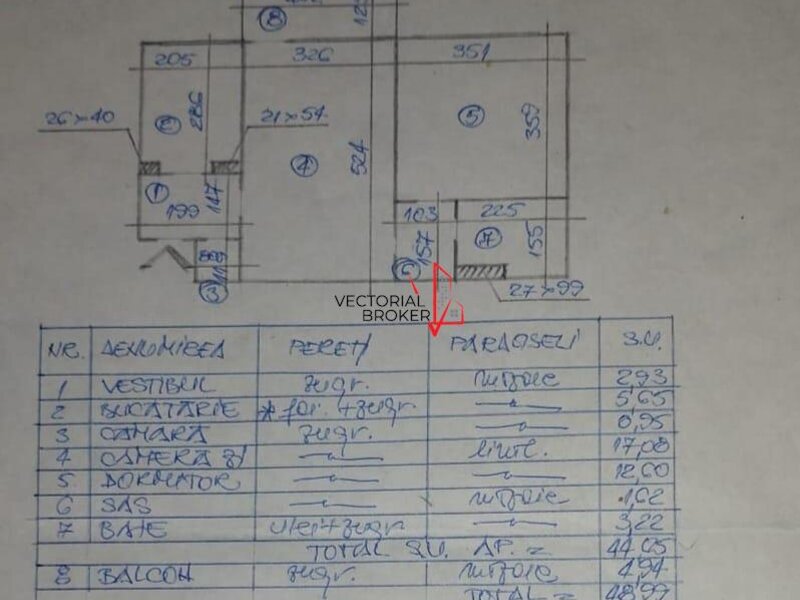 8
205 326 351
26×40 286 21×54 5 359
2
4 524
1 147
199 103 225
157 7 155
3 6
27×99
VECTORIAL
BROKER
NR. DENUMIREA PEREȚI PARDOSELI S.U.
1 VESTIBUL zugr. mozaic 2,93
2 BUCATARIE * fai. + zugr. 5,65
3 CAMARA zugr. 0,95
4 CAMERA ZI 17,08
5 DORMITOR 12,60
6 SAS mozaic 1,62
7 BAIE ulei+zugr 3,22
TOTAL S.U. AP. = 44,05
8 BALCON zugr. mozaic 4,94
TOTAL = 48,99